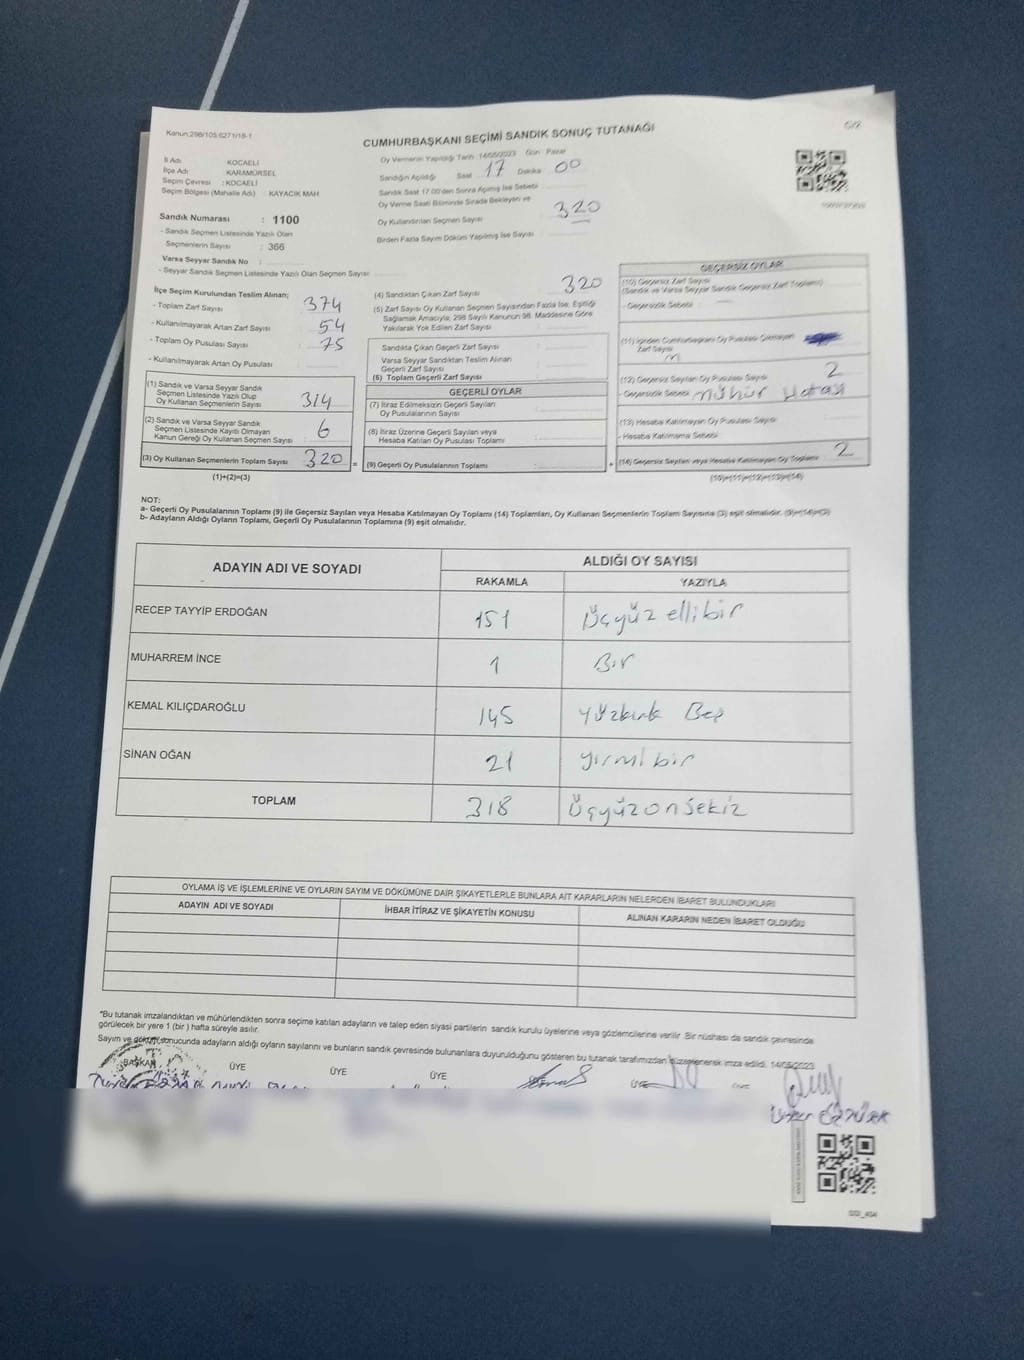 Kanun;298/105;6271/18-1
CUMHURBAŞKANI SEÇİMİ SANDIK SONUÇ TUTANAĞI
İl Adı KOCAELİ
İlçe Adı KARAMÜRSEL
Seçim Çevresi : KOCAELİ
Seçim Bölgesi (Mahalle Adı) : KAYACIK MAH.
Oy Vermenin Yapıldığı Tarih :14/05/2023 Gün : Pazar
Sandığın Açıldığı Saat 17 Dakika 00
Sandık Saat 17:00'den Sonra Açılmış İse Sebebi
Oy Verme Saati Bitiminde Sırada Bekleyen ve
Oy Kullandırılan Seçmen Sayısı 320
Birden Fazla Sayım Döküm Yapılmış İse Sayısı :
Sandık Numarası : 1100
- Sandık Seçmen Listesinde Yazılı Olan
Seçmenlerin Sayısı : 366
Varsa Seyyar Sandık No :
- Seyyar Sandık Seçmen Listesinde Yazılı Olan Seçmen Sayısı
İlçe Seçim Kurulundan Teslim Alınan;
- Toplam Zarf Sayısı : 374
- Kullanılmayarak Artan Zarf Sayısı : 54
- Toplam Oy Pusulası Sayısı : 75
- Kullanılmayarak Artan Oy Pusulası :
(1) Sandık ve Varsa Seyyar Sandık
Seçmen Listesinde Yazılı Olup
Oy Kullanan Seçmenlerin Sayısı : 314
(2) Sandık ve Varsa Seyyar Sandık
Seçmen Listesinde Kayıtlı Olmayan
Kanun Gereği Oy Kullanan Seçmen Sayısı : 6
(3) Oy Kullanan Seçmenlerin Toplam Sayısı : 320 =
(1)+(2)=(3)
(4) Sandıktan Çıkan Zarf Sayısı : 320
(5) Zarf Sayısı Oy Kullanan Seçmen Sayısından Fazla İse, Eşitliği
Sağlamak Amacıyla; 298 Sayılı Kanunun 98. Maddesine Göre
Yakılarak Yok Edilen Zarf Sayısı :
Sandıkta Çıkan Geçerli Zarf Sayısı :
Varsa Seyyar Sandıktan Teslim Alınan
Geçerli Zarf Sayısı :
(6) Toplam Geçerli Zarf Sayısı :
GEÇERLİ OYLAR
(7) İtiraz Edilmeksizin Geçerli Sayılan
Oy Pusulalarının Sayısı :
(8) İtiraz Üzerine Geçerli Sayılan veya
Hesaba Katılan Oy Pusulası Toplamı :
(9) Geçerli Oy Pusulalarının Toplamı : +
GEÇERSİZ OYLAR
(10) Geçersiz Zarf Sayısı
(Sandık ve Varsa Seyyar Sandık Geçersiz Zarf Toplamı) :
- Geçersizlik Sebebi :
(11) İçinden Cumhurbaşkanı Oy Pusulası Çıkmayan
Zarf Sayısı
(12) Geçersiz Sayılan Oy Pusulası Sayısı : 2
- Geçersizlik Sebebi : mühür Hatası
(13) Hesaba Katılmayan Oy Pusulası Sayısı :
- Hesaba Katılmama Sebebi :
(14) Geçersiz Sayılan veya Hesaba Katılmayan Oy Toplamı : 2
(10)+(11)+(12)+(13)=(14)
NOT:
a- Geçerli Oy Pusulalarının Toplamı (9) ile Geçersiz Sayılan veya Hesaba Katılmayan Oy Toplamı (14) Toplamları, Oy Kullanan Seçmenlerin Toplam Sayısına (3) eşit olmalıdır. (9)+(14)=(3)
b- Adayların Aldığı Oyların Toplamı, Geçerli Oy Pusulalarının Toplamına (9) eşit olmalıdır.
ADAYIN ADI VE SOYADI ALDIĞI OY SAYISI
RAKAMLA YAZIYLA
RECEP TAYYİP ERDOĞAN 151 Üçyüz ellibir
MUHARREM İNCE 1 Bir
KEMAL KILIÇDAROĞLU 145 yüzkırk Beş
SİNAN OĞAN 21 yirmibir
TOPLAM 318 Üçyüzonsekiz
OYLAMA İŞ VE İŞLEMLERİNE VE OYLARIN SAYIM VE DÖKÜMÜNE DAİR ŞİKAYETLERLE BUNLARA AİT KARARLARIN NELERDEN İBARET BULUNDUKLARI
ADAYIN ADI VE SOYADI İHBAR İTİRAZ VE ŞİKAYETİN KONUSU ALINAN KARARIN NEDEN İBARET OLDUĞU
*Bu tutanak imzalandıktan ve mühürlendikten sonra seçime katılan adayların ve talep eden siyasi partilerin sandık kurulu üyelerine veya gözlemcilerine verilir. Bir nüshası da sandık çevresinde
görülecek bir yere 1 (bir ) hafta süreyle asılır.
Sayım ve döküm sonucunda adayların aldığı oyların sayılarını ve bunların sandık çevresinde bulunanlara duyurulduğunu gösteren bu tutanak tarafımızdan düzenlenerek imza edildi. 14/05/2023
BAŞKAN ÜYE ÜYE ÜYE ÜYE